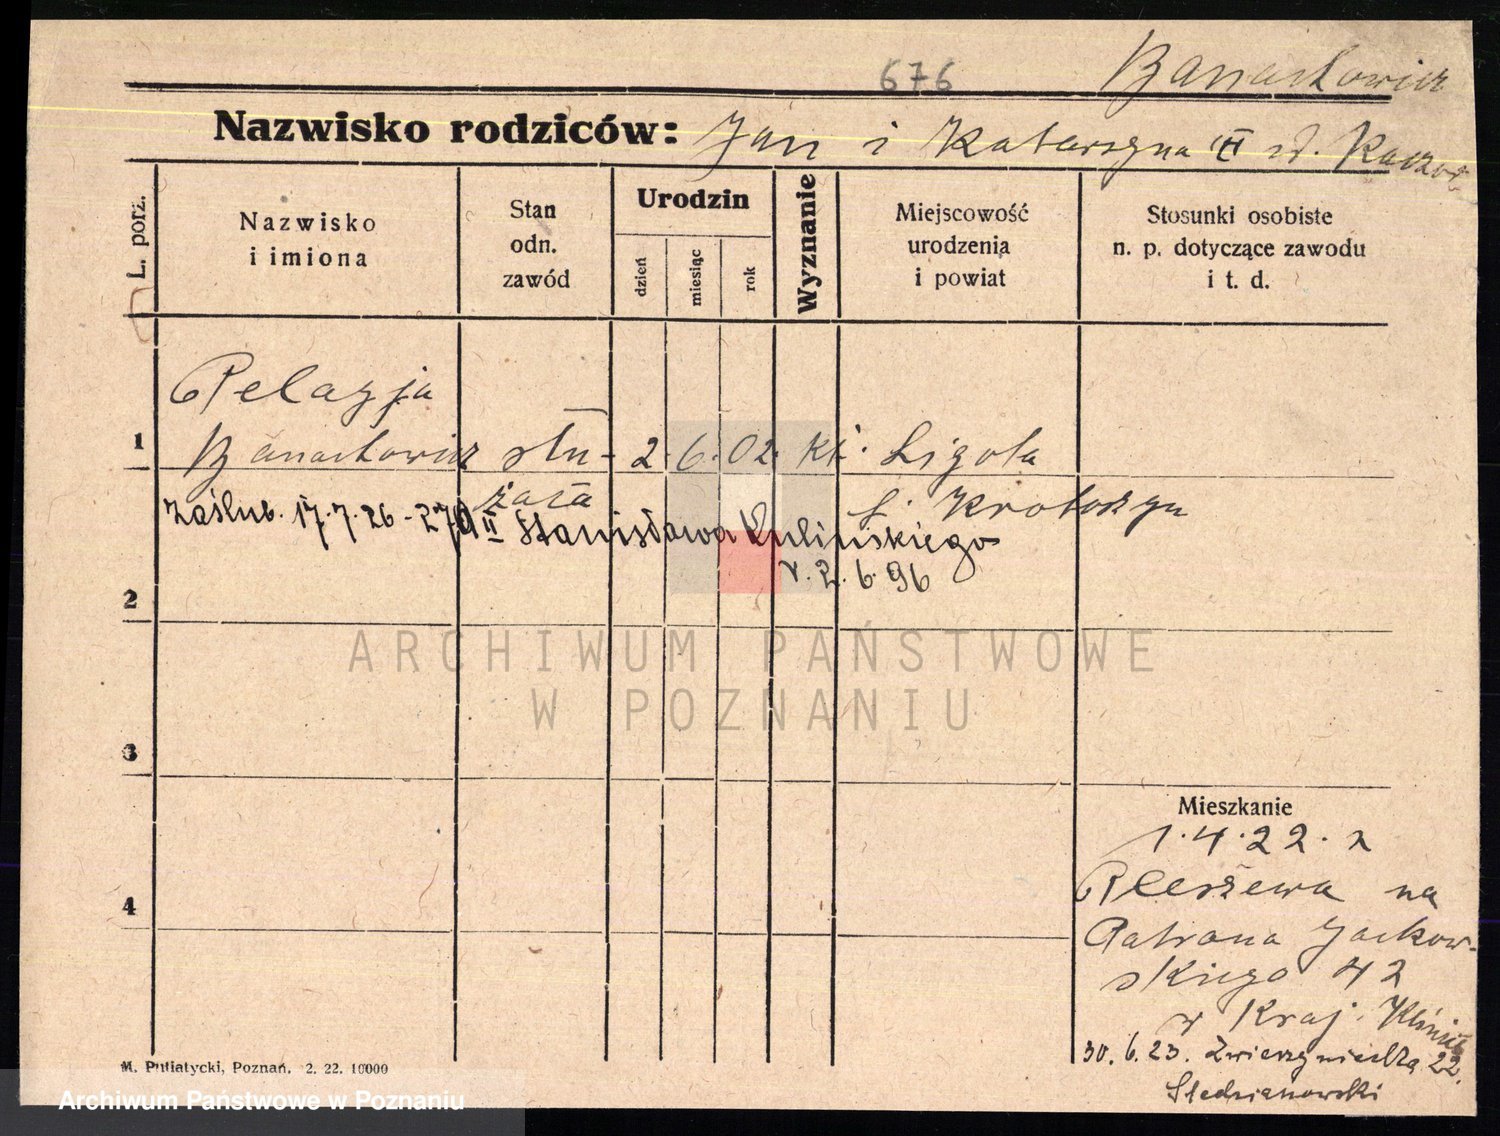 676
Banachowicz
Nazwisko rodziców: Jan i Katarzyna II d. Kaczor
L. porz.
Nazwisko
i imiona
Stan
odn.
zawód
Urodzin
dzień
miesiąc
rok
Wyznanie
Miejscowość
urodzenia
i powiat
Stosunki osobiste
n. p. dotyczące zawodu
i t. d.
Pelazja
1 Banachowicz słu- 2. 6. 02. kt. Ligota
żąca Krotoszyn
Zaślub. 17.7.26 - 270 II Stanisława Kulińskiego
2
r. 2. 6. 96
ARCHIWUM PAŃSTWOWE
W POZNANIU
3
Mieszkanie
1.4.22. z
Pleszewa na
4
Patrona Jackow-
skiego 42
w Kraj. Klinice
30. 6. 23. Zwierzyniecka 22.
M. Putiatycki, Poznań. 2. 22. 10000
Archiwum Państwowe w Poznaniu